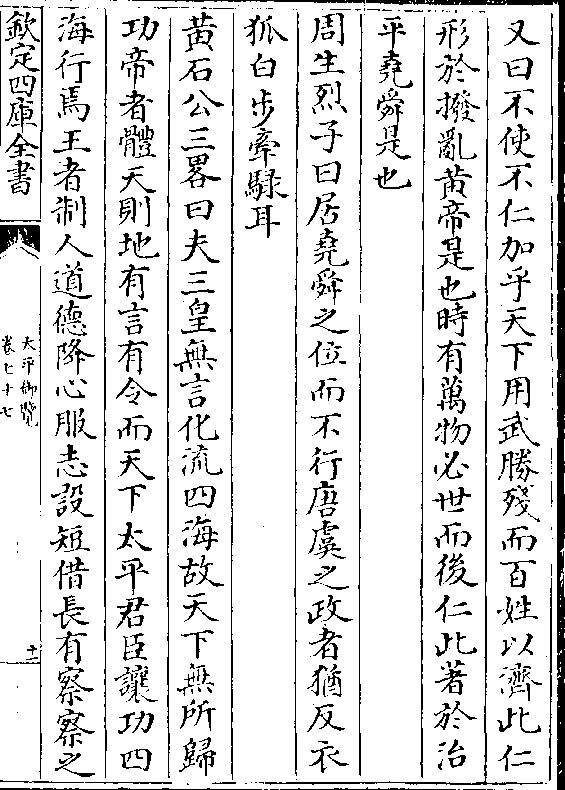 又曰不使不仁加乎天下用武勝殘而百姓以濟此仁
形於撥亂黄帝是也時有萬物必世而後仁此著於治
平堯舜是也
周生烈子曰居堯舜之位而不行唐虞之政者猶反衣
狐白步牽騄耳
黄石公三畧曰夫三皇無言化流四海故天下無所歸
功帝者體天則地有言有令而天下太平君臣讓功四
海行焉王者制人道德降心服志設短借長有察察之
欽定四庫全書
太平御覽
卷七十七
十二